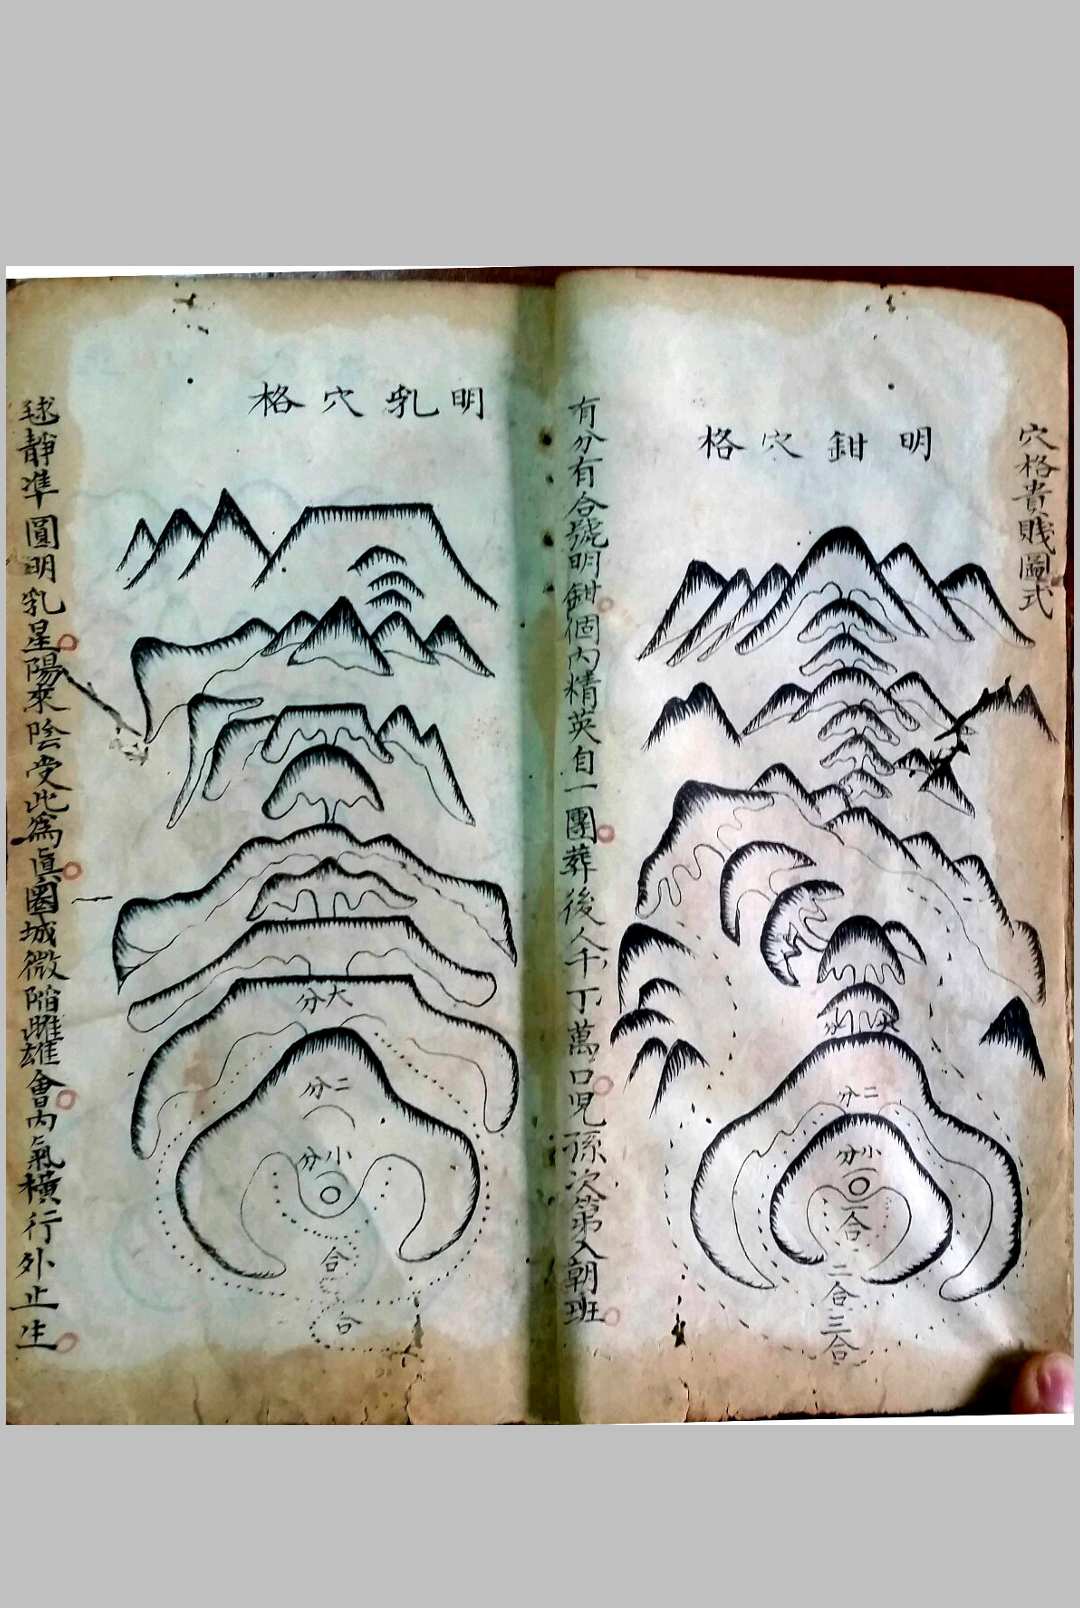 穴格貴賤圖式
明鉗穴格
大分
二分
小分
一合
二合
三合
有分有合號明鉗個內精英自一團葬後人千丁萬口児孫次第入朝班
明乳穴格
大分
二分
小分
合
合
毬靜準圓明乳星陽來陰受此爲眞圈城微陷雌雄會內氣橫行外止生